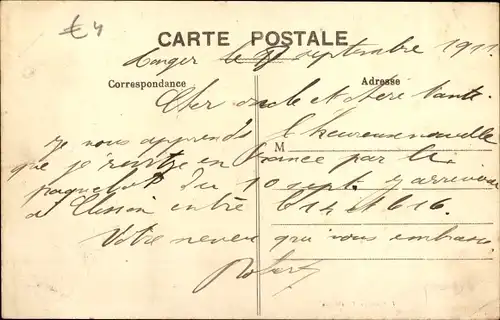 € 4
CARTE POSTALE
Tanger le 7 septembre 1911.
Correspondance
Adresse
Cher oncle et chère tante
Je vous apprends l'heureuse nouvelle
M
que je rentre en France par le
paquebot du 10 sept. j'arriverai
à Clisson entre le 14 et le 16.
Votre neveu qui vous embrasse
Robert